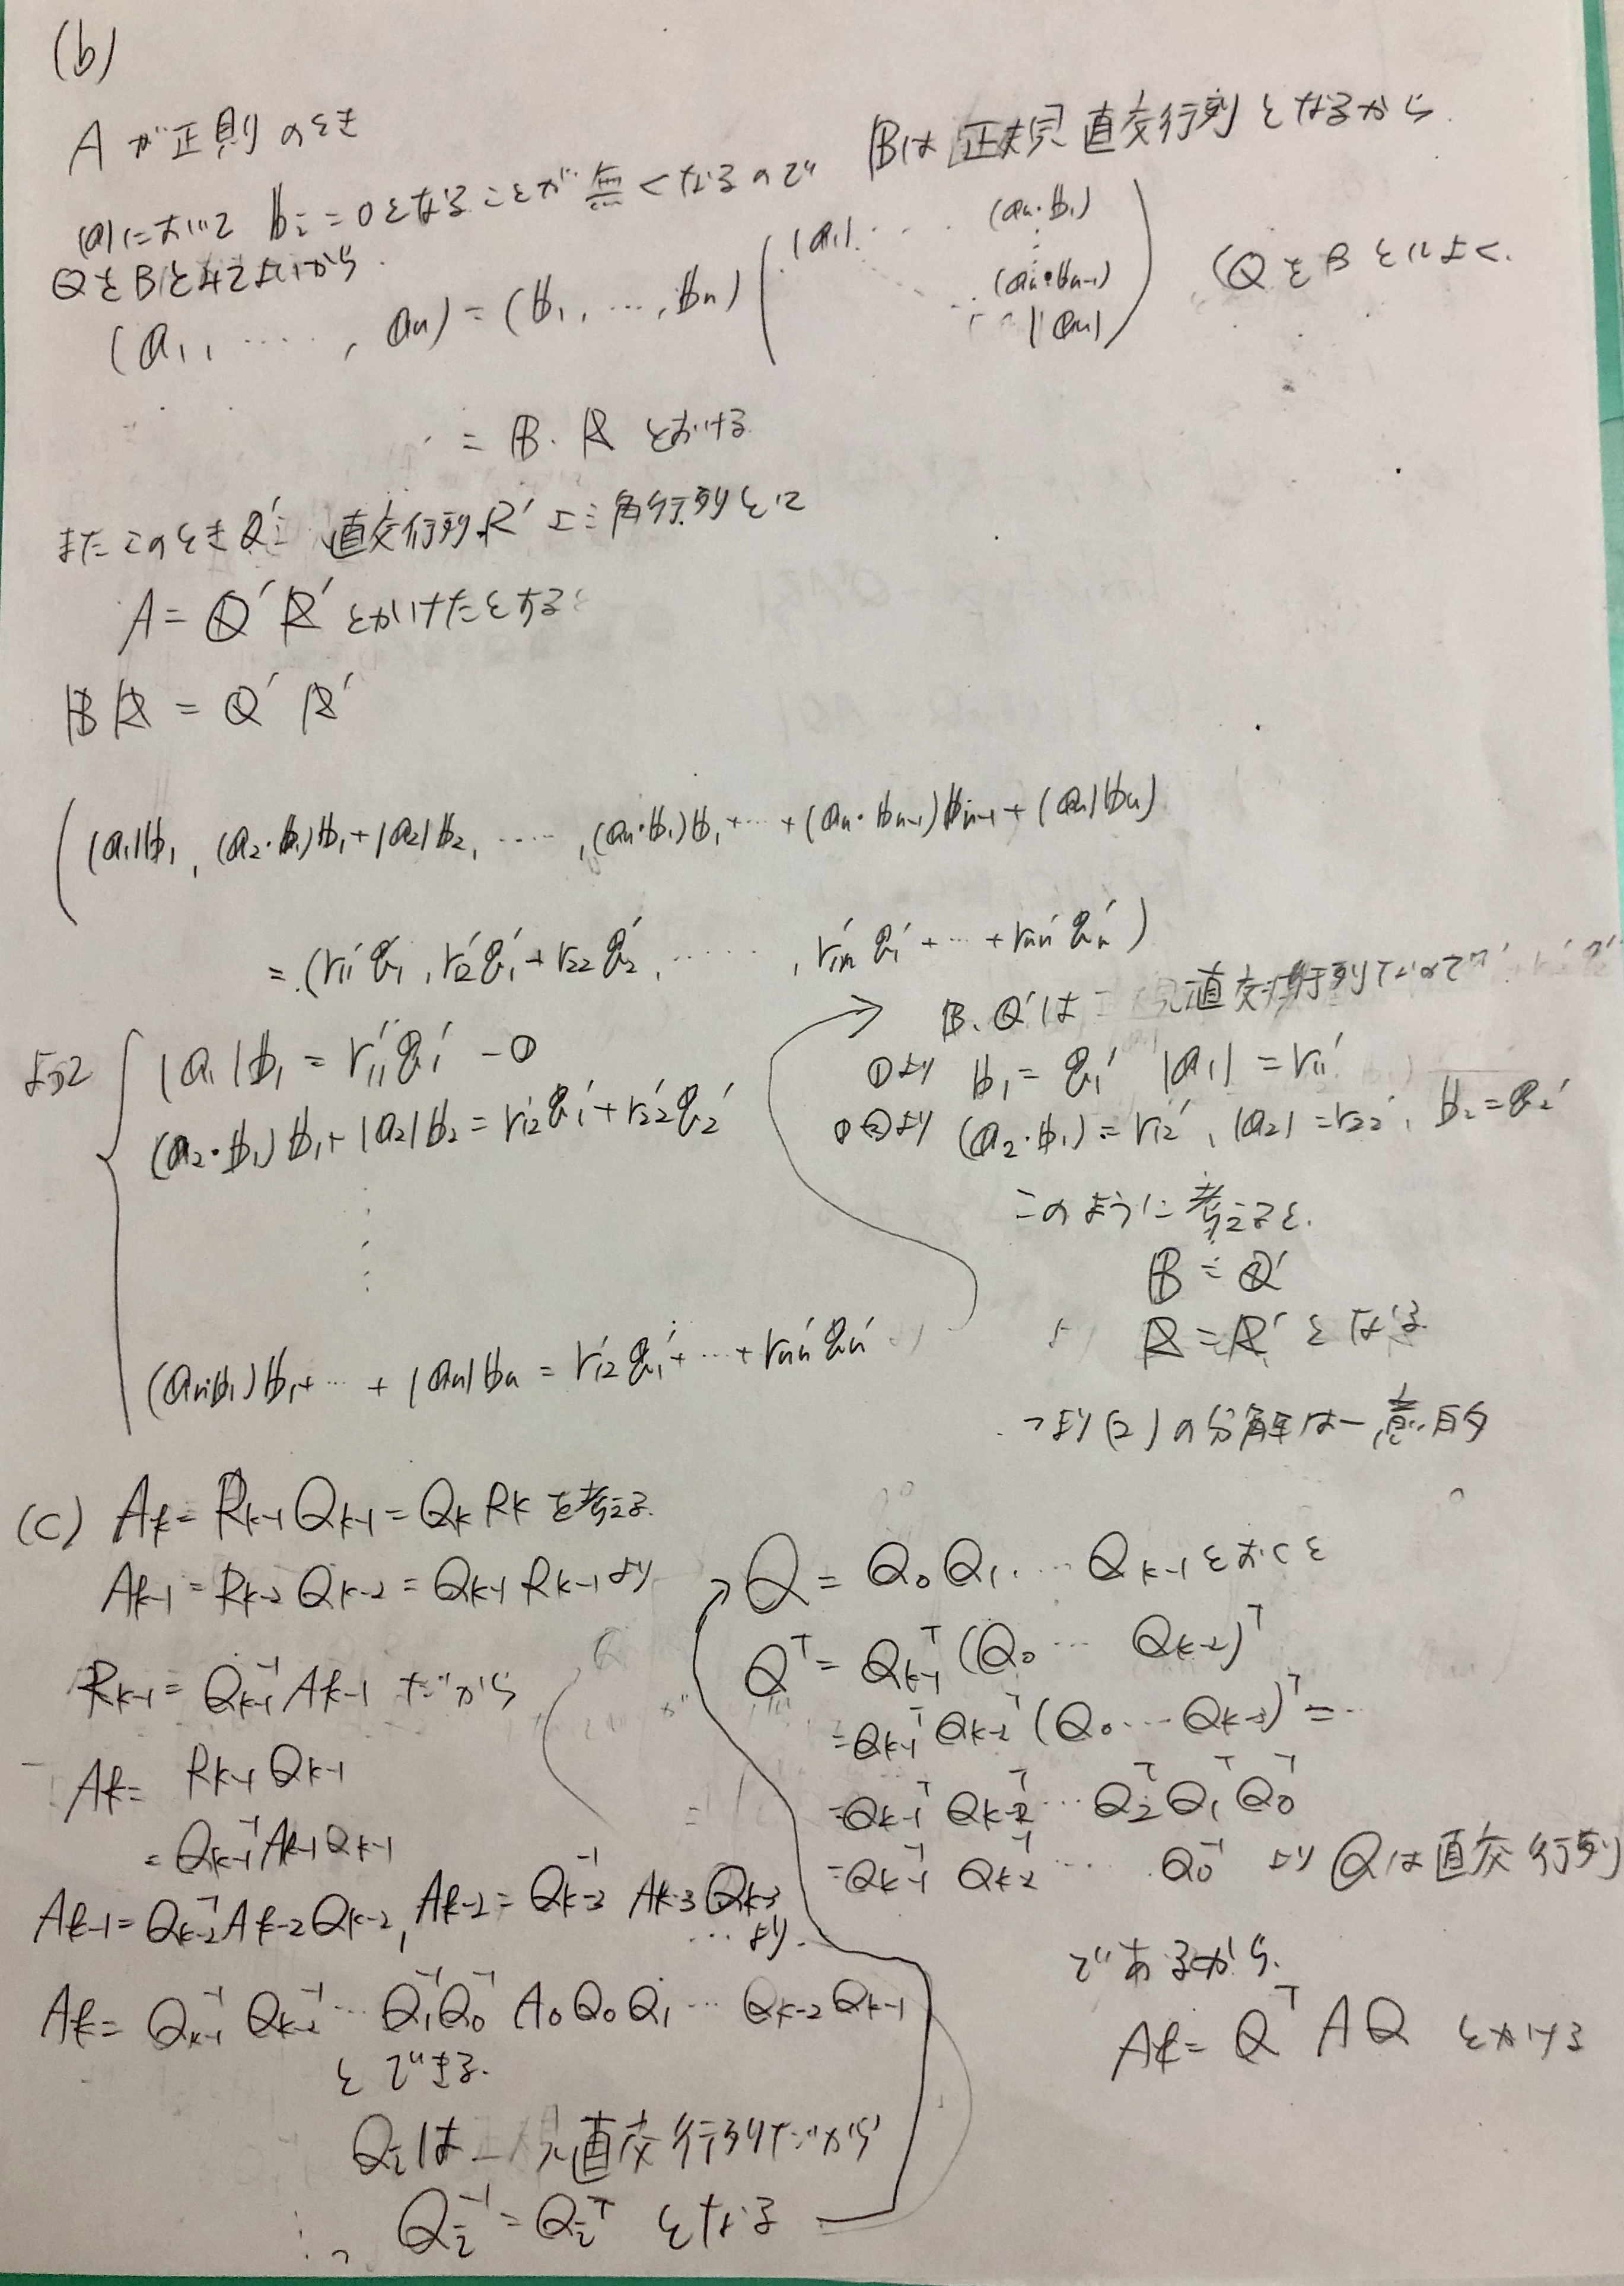 (b)
Aが正則のとき
(a)において b_i=0となることが無くなるので Bは正規直交行列となるから
QをBとしてよいから
(a_1, ……, a_n) = (b_1, …, b_n) ( |a_1| …… (a_n・b_1) ⋮ (a_n・b_{n-1}) |a_n| ) (QをBとしよく.
= B・R とおける
またこのときQ': 直交行列, R' 上三角行列として
A = Q'R' とかけたとする
BR = Q'R'
( |a_1|b_1, (a_2・b_1)b_1+|a_2|b_2, ……, (a_n・b_1)b_1+…+(a_n・b_{n-1})b_{n-1}+|a_n|b_n)
= (r_{11}'q_1', r_{12}'q_1'+r_{22}q_2', ……, r_{1n}'q_1'+…+r_{nn}'q_n')
よって { |a_1|b_1 = r_{11}'q_1' -①
(a_2・b_1)b_1+|a_2|b_2 = r_{12}'q_1'+r_{22}'q_2'
⋮
(a_n・b_1)b_1+…+|a_n|b_n = r_{12}'q_1'+…+r_{nn}'q_n'
B, Q'は 直交行列なので
①より b_1 = q_1' |a_1| = r_{11}'
①②より (a_2・b_1) = r_{12}', |a_2| = r_{22}', b_2 = q_2'
このように考えると.
B = Q'
R = R' となる
つまり(2)の分解は一意的
(C) A_k = R_{k-1}Q_{k-1} = Q_kR_k を考える.
A_{k-1} = R_{k-2}Q_{k-2} = Q_{k-1}R_{k-1}より
R_{k-1} = Q_{k-1}^{-1}A_{k-1} だから
A_k = R_{k-1}Q_{k-1}
= Q_{k-1}^{-1}A_{k-1}Q_{k-1}
A_{k-1} = Q_{k-2}^{-1}A_{k-2}Q_{k-2}, A_{k-2} = Q_{k-3}^{-1}A_{k-3}Q_{k-3}
…より.
A_k = Q_{k-1}^{-1}Q_{k-2}^{-1}…Q_1^{-1}Q_0^{-1}A_0Q_0Q_1…Q_{k-2}Q_{k-1}
とできる.
Q_iは 直交行列だから
Q_i^{-1} = Q_i^T となる
Q = Q_0Q_1…Q_{k-1}とおくと
Q^T = Q_{k-1}^T(Q_0…Q_{k-2})^T
= Q_{k-1}^TQ_{k-2}^T(Q_0…Q_{k-3})^T = …
= Q_{k-1}^TQ_{k-2}^T…Q_2^TQ_1^TQ_0^T
= Q_{k-1}^{-1}Q_{k-2}^{-1}…Q_0^{-1} より Qは直交行列
であるから.
A_k = Q^TAQ とかける